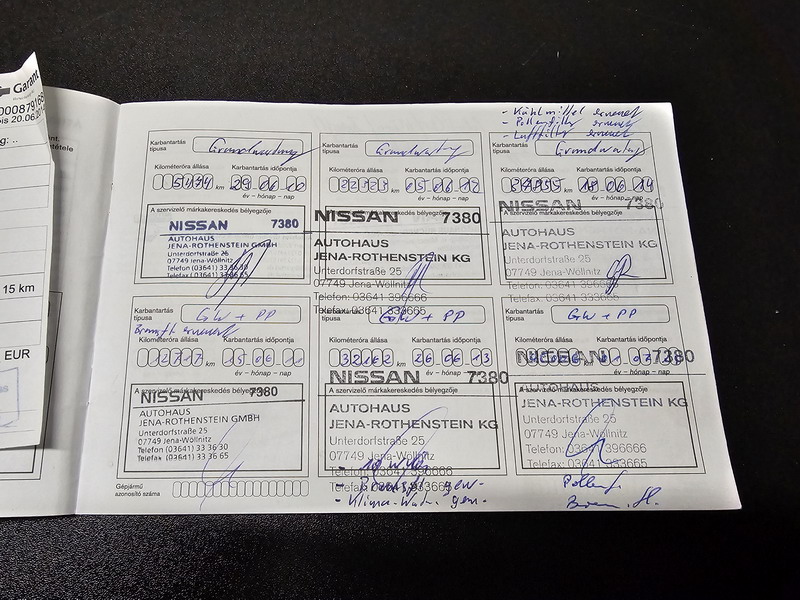 Garant
00087916
bis 20.06.20
15 km
EUR
- Kühlmittel erneuert
- Pollenfilter erneuert
- Luftfilter erneuert
Karbantartás típusa
Grundwartung
Kilométeróra állása
Karbantartás időpontja
5434 km 29 06 10
év - hónap - nap
A szervizelő márkakereskedés bélyegzője
NISSAN 7380
AUTOHAUS
JENA-ROTHENSTEIN GMBH
Unterdorfstraße 25
07749 Jena-Wöllnitz
Telefon (03641) 33 36 30
Telefax (03641) 33 36 65
Karbantartás típusa
Grundwartung
Kilométeróra állása
Karbantartás időpontja
km 05 06 12
év - hónap - nap
A szervizelő márkakereskedés bélyegzője
NISSAN 7380
AUTOHAUS
JENA-ROTHENSTEIN KG
Unterdorfstraße 25
07749 Jena-Wöllnitz
Telefon: 03641 396666
Karbantartás típusa
Grundwartung
Kilométeróra állása
Karbantartás időpontja
km 18 06 14
év - hónap - nap
NISSAN 7380
A szervizelő márkakereskedés bélyegzője
AUTOHAUS
JENA-ROTHENSTEIN KG
Unterdorfstraße 25
07749 Jena-Wöllnitz
Karbantartás típusa
GW + PP
Kilométeróra állása
Karbantartás időpontja
12717 km 15 06 11
év - hónap - nap
A szervizelő márkakereskedés bélyegzője
NISSAN 7380
AUTOHAUS
JENA-ROTHENSTEIN GMBH
Unterdorfstraße 25
07749 Jena-Wöllnitz
Telefon (03641) 33 36 30
Telefax (03641) 33 36 65
Gépjármű azonosító száma
Karbantartás típusa
GW + PP
Kilométeróra állása
Karbantartás időpontja
32162 km 26 06 13
év - hónap - nap
NISSAN 7380
A szervizelő márkakereskedés bélyegzője
AUTOHAUS
JENA-ROTHENSTEIN KG
Unterdorfstraße 25
07749 Jena-Wöllnitz
Karbantartás típusa
GW + PP
Kilométeróra állása
Karbantartás időpontja
NISSAN 7380
év - hónap - nap
A szervizelő márkakereskedés bélyegzője
AUTOHAUS
JENA-ROTHENSTEIN KG
Unterdorfstraße 25
07749 Jena-Wöllnitz